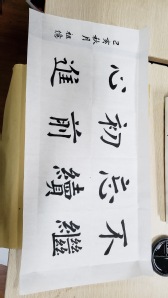 不忘初心
繼續前進
己亥秋月 祖